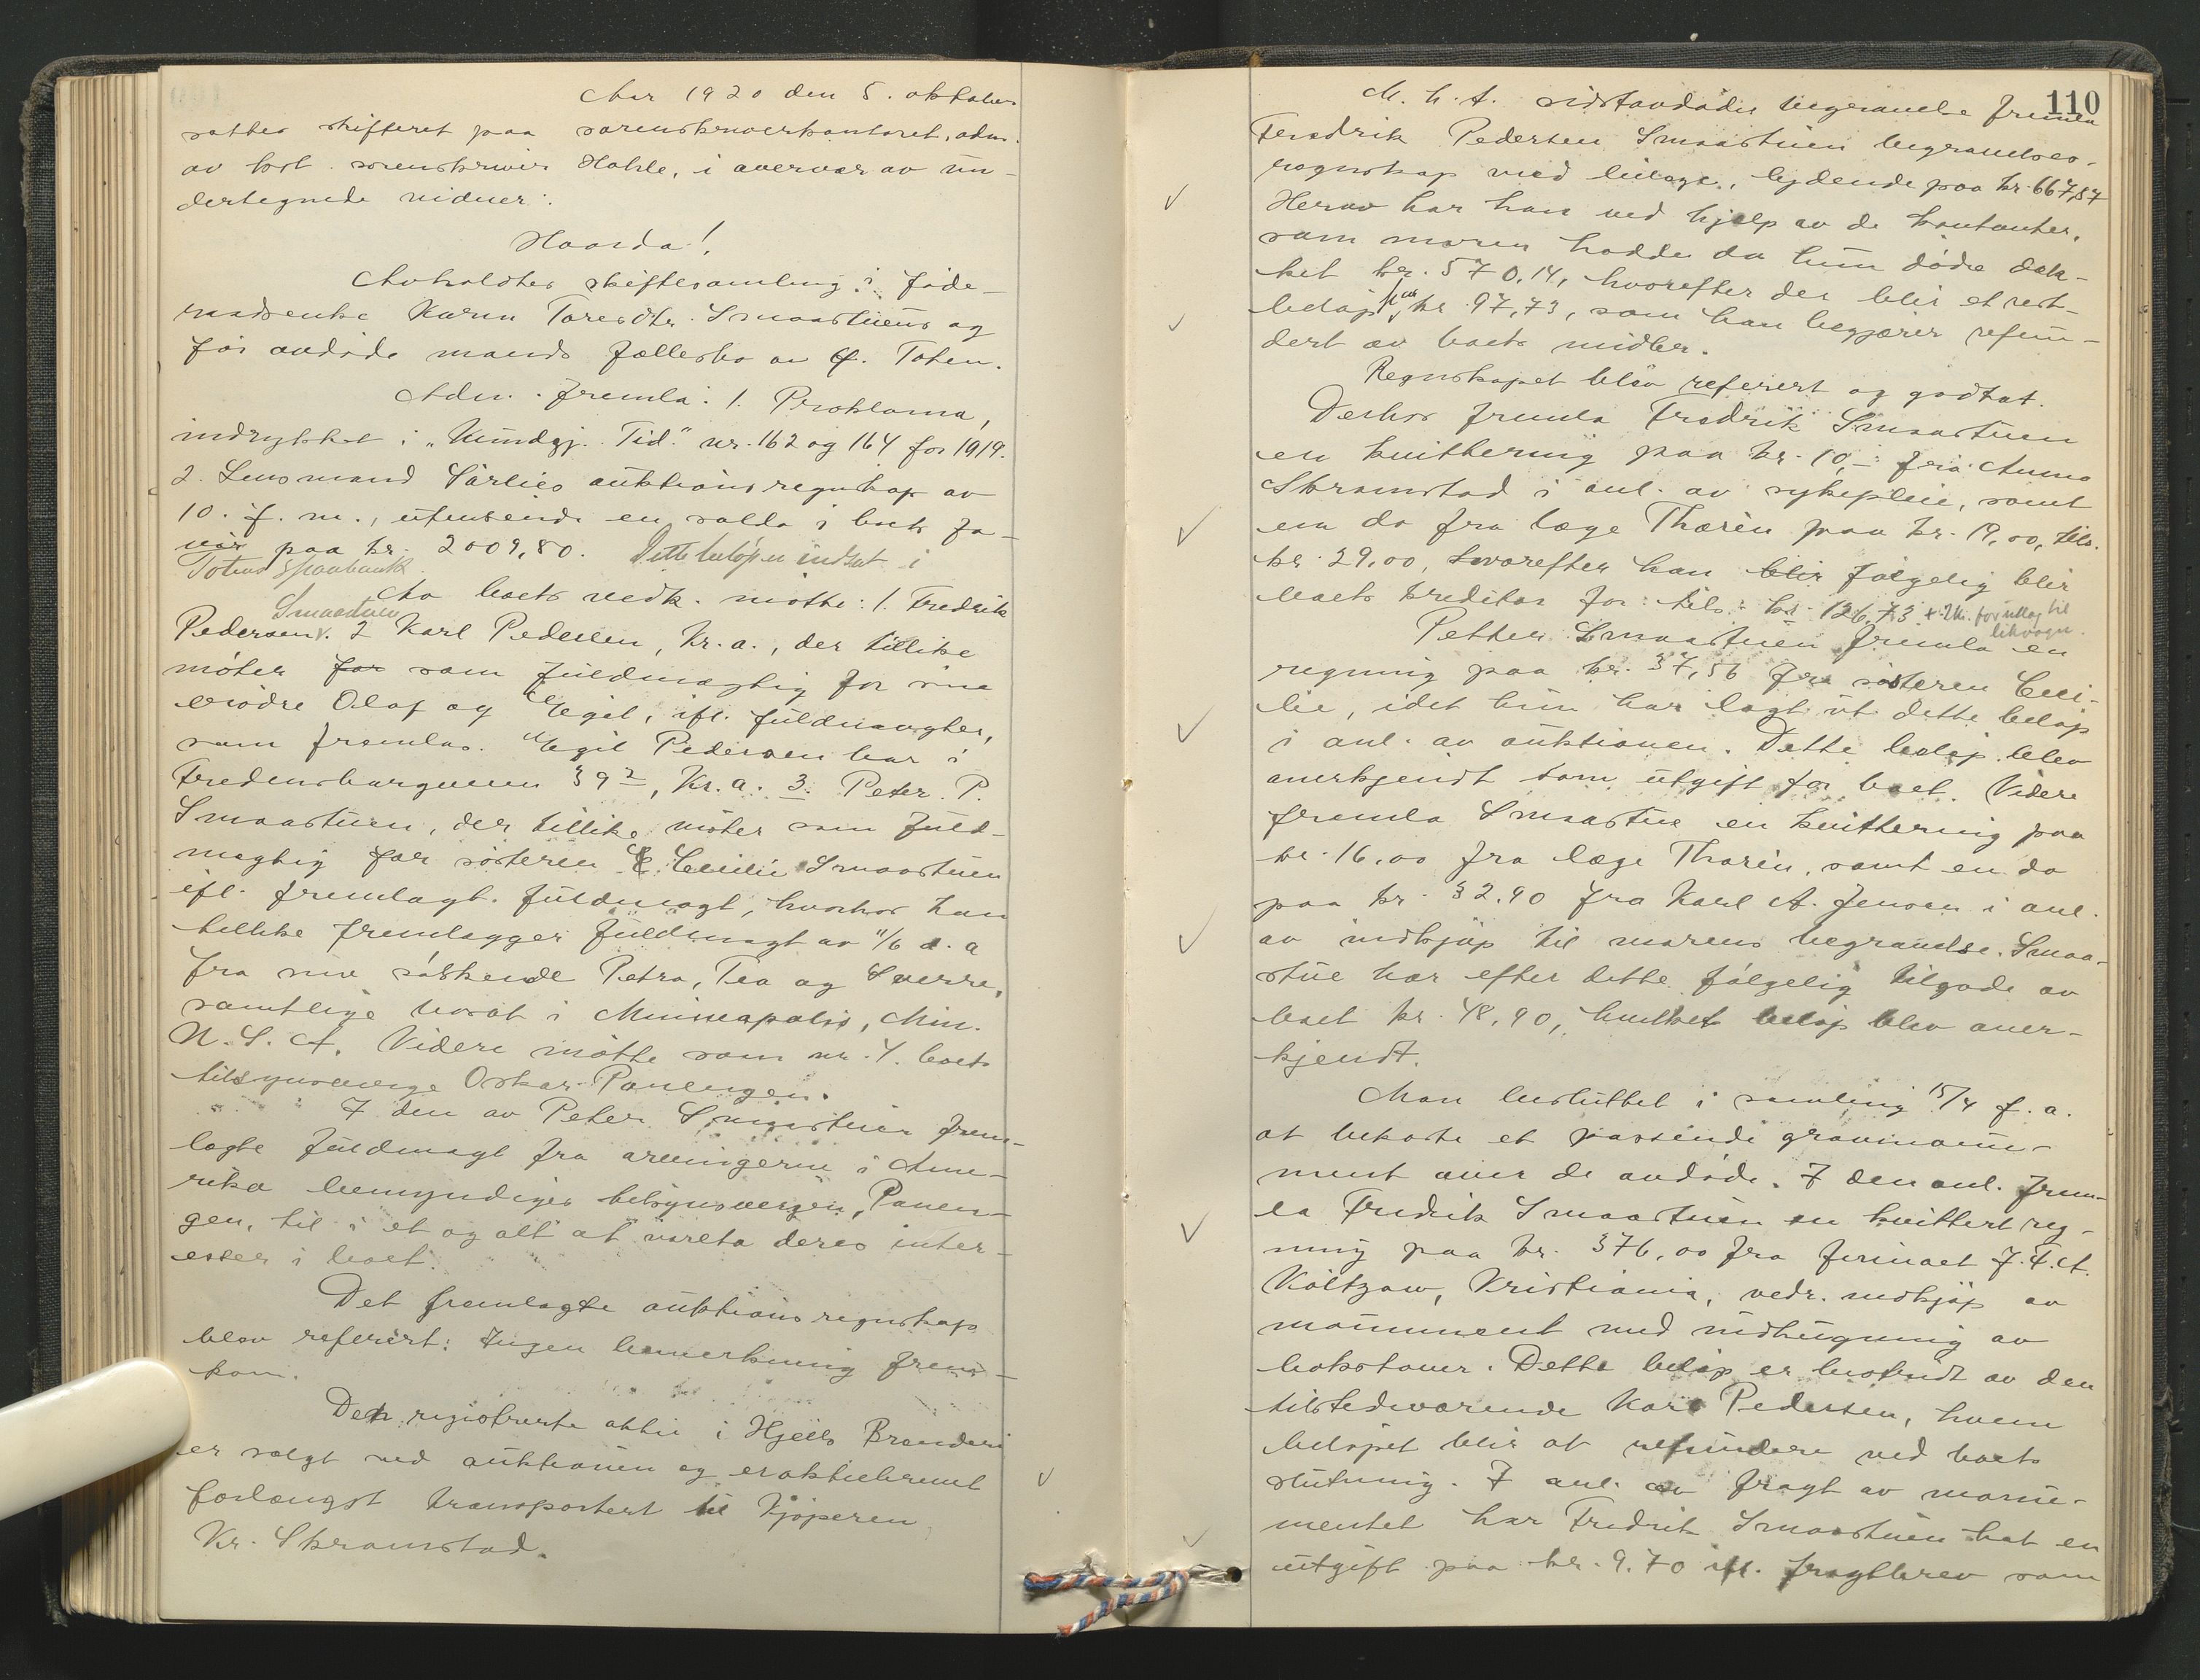 Aar 1920 den 5. oktober
sattes skifteret paa sorenskriverkontoret, adm.
av kst. sorenskriver Hohle, i overvær av un-
dertegnede vidner:
Hvorda!
Avholdtes skiftesamling i føde-
raadsenke Karen Toresdtr. Smaastuens og
før avdøde mands fællesbo av Ø. Toten.
Adm. fremla: 1. Proklama,
indrykket i "Kundgj. Tid." nr. 162 og 164 for 1919.
2. Lensmand Sørlies auktionsregnskap av
10. f. m., utvisende en saldo i bots fa-
vør paa kr. 2009,80. Dette beløp er indsat i
Totens Sparebank.
Av boets vedk. møtte: 1. Fredrik
Smaastuen
Pedersen. 2 Karl Pedersen, Kr.a., der tillike
møter for som fuldmægtig for sine
brødre Olaf og Egil, ifl. fuldmagter,
som fremlas. Egil Pedersen bor i
Fredensborgveien 39 2, Kr.a. 3. Peter P.
Smaastuen, der tillike møter som fuld-
mægtig for søsteren Cecilie Smaastuen
ifl. fremlagt fuldmagt, hvorhos han
tillike fremlægger fuldmagt av 11/6 d. a
fra sine søskende Petra, Tea og Sverre,
samtlige bosat i Minneapolis, Min.
U. S. A. Videre møtte som nr. 4. boets
tilsynsverge Oskar Panengen.
I den av Peter Smaastuen frem-
lagte fuldmagt fra arvingerne i Ame-
rika bemyndiges tilsynsvergen, Panen-
gen, til i et og alt at vareta deres inter-
esser i boet.
Det fremlagte auktionsregnskap
blev referert: Ingen bemerkning frem-
kom.
Den registrerte aktie i Hjells Brænderi
er solgt ved auktionen og er aktiebrevet
forlængst transportert til kjøperen
Kr. Skramstad.
110
M. h. t. sidstavdødes begravelse fremla
Fredrik Pedersen Smaastuen begravelses-
regnskap med bilage, lydende paa kr. 667,87
Herav har han ved hjelp av de kontanter,
som moren hadde da hun døde dæk-
ket kr. 570,14, hvorefter der blir et rest-
beløp kr. 97,73, som han begjærer refun-
dert av boets midler.
Regnskapet blev referert og godtat.
Derhos fremla Fredrik Smaastuen
en kvittering paa kr. 10,- fra Anne
Skramstad i anl. av sykepleie, samt
en do fra læge Thorén paa kr. 19,00, tils.
kr. 29,00, hvorefter han blir følgelig blir
boets kreditor for: tils: kr. 126,73 + 2 kr. for utlæg til
likvogn.
Petter Smaastuen fremla en
regning paa kr. 37,56 fra søsteren Ceci-
lie, idet hun har lagt ut dette beløp
i anl. av auktionen. Dette beløp blev
anerkjendt som utgift for boet. Videre
fremla Smaastue en kvittering paa
kr. 16,00 fra læge Thorén, samt en do
paa kr. 32,90 fra Karl A. Jensen i anl.
av indkjøp til morens begravelse. Smaa-
stue har efter dette følgelig tilgode av
boet kr. 48,90, hvilket beløp blev aner-
kjendt.
Man besluttet i samling 15/4 f. a.
at bekoste et passende gravmonu-
ment over de avdøde. I den anl. frem-
la Fredrik Smaastuen en kvittert reg-
ning paa kr. 376,00 fra firmaet
Køltzow, Kristiania, vedr. indkjøp av
monument med indhugning av
bokstaver. Dette beløp er bestridt av den
tilstedeværende Karl Pedersen, hvem
beløpet blir at refundere ved boets
slutning. I anl. av fragt av monu-
mentet har Fredrik Smaastuen hat en
utgift paa kr. 9.70 ifl. fragtbrev som